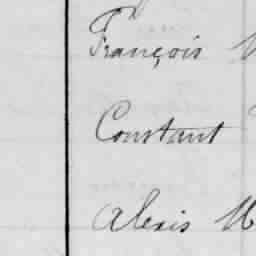 François
Constant
Alexis